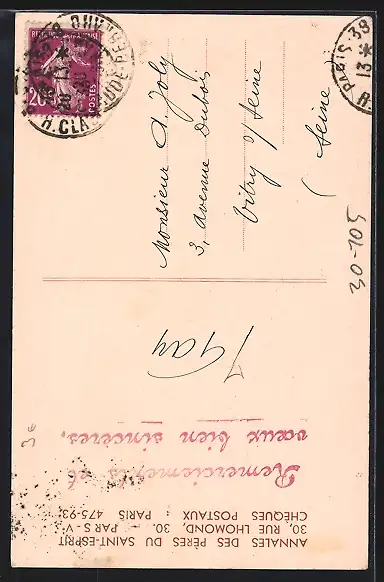 REPUBLIQUE FRANÇAISE
20c
POSTES
PARIS 38
R. CLAUDE BERNARD
13
PARIS 38
13
R.
Monsieur A. Joly
3, avenue Dubois
Vitry s/Seine
(Seine)
03-705
Gay
3e
Remerciements et
vœux bien sincères.
ANNALES DES PÈRES DU SAINT-ESPRIT
30, RUE LHOMOND, 30. - PARIS-V
CHÈQUES POSTAUX : PARIS 475-93